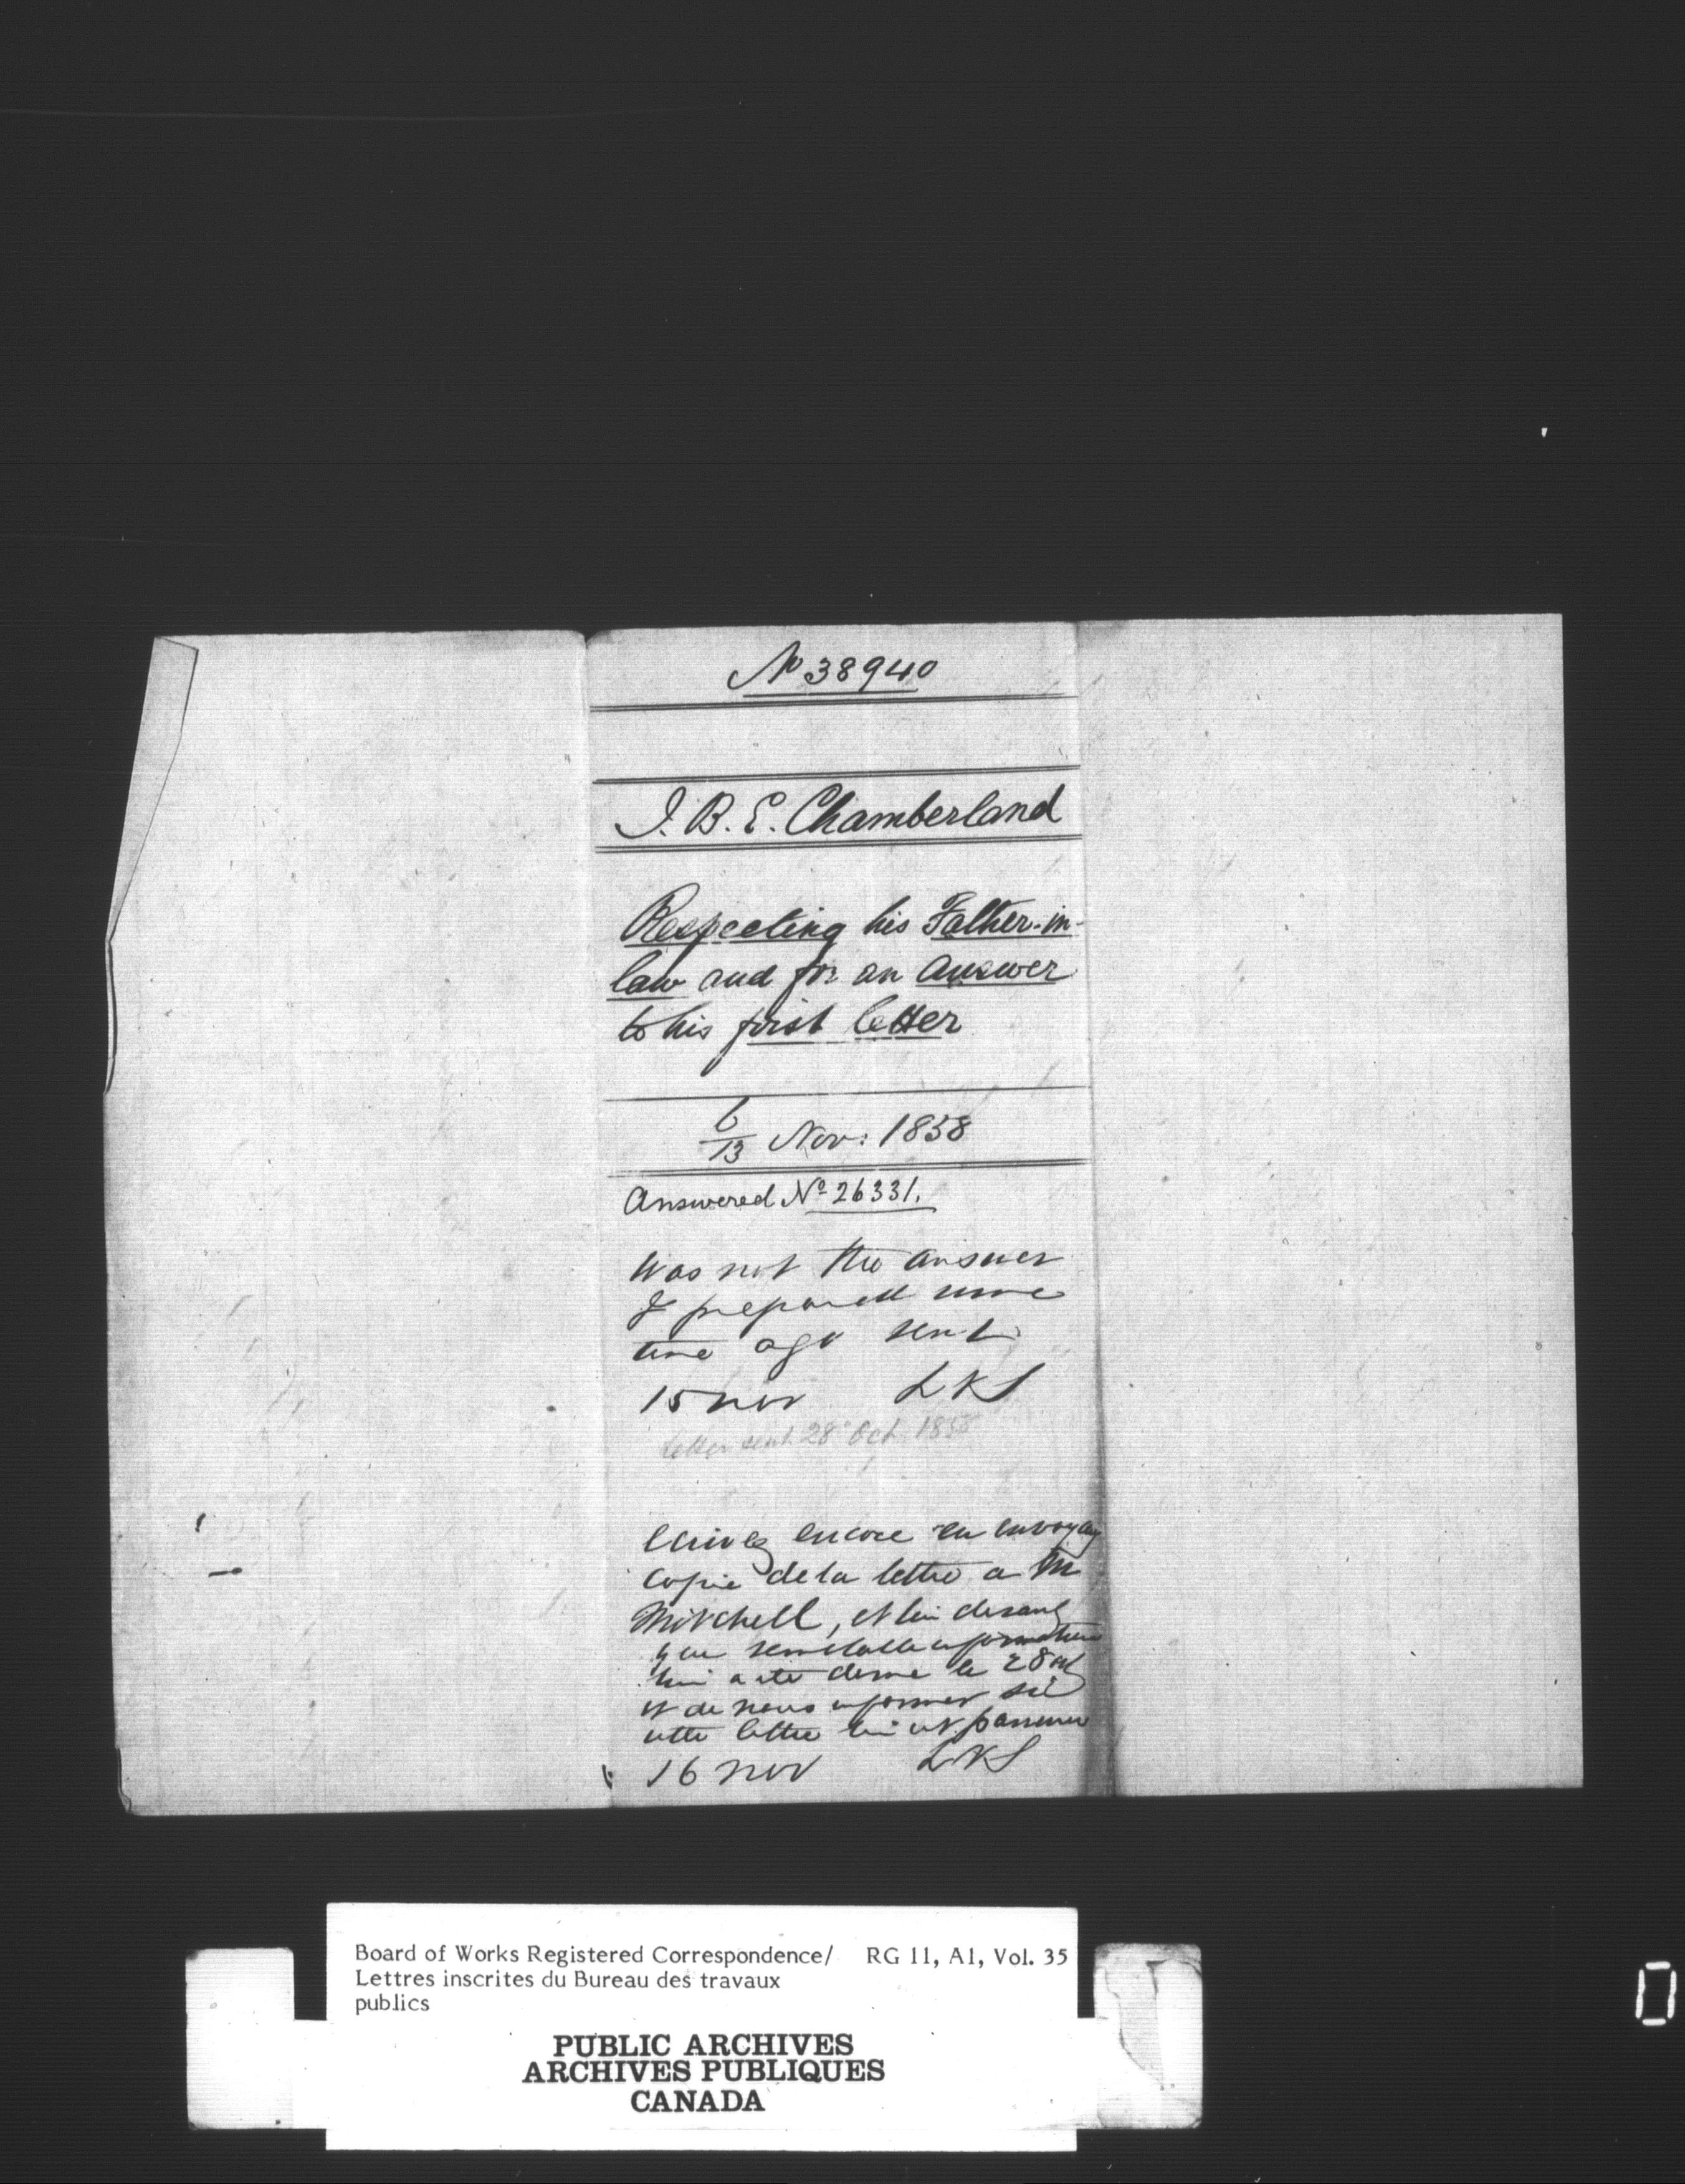 No 38940
J. B. E. Chamberland
Respecting his Father-in-
law and for an answer
to his first letter
6/13 Nov: 1858
Answered No 26331.
Was not the answer
I prepared some
time ago sent
15 nov LKS
letter sent 28 Oct 1858
Ecrivez encore en envoyant
copie de la lettre a Mr
Mitchell, et lui disant
que semblable information
lui a ete donne le 28 oct
et de nous informer si
cette lettre lui est parvenue
16 nov LKS
Board of Works Registered Correspondence/ RG 11, A1, Vol. 35
Lettres inscrites du Bureau des travaux
publics
PUBLIC ARCHIVES
ARCHIVES PUBLIQUES
CANADA